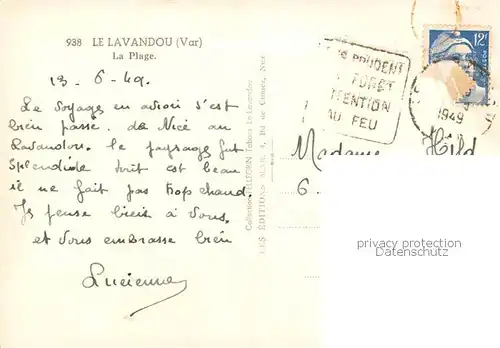 938 LE LAVANDOU (Var)
La Plage.
13-6-49.
Le voyage en avion s'est
bien passé. de Nice au
Lavandou. le paysage fut
splendide tout est beau
il ne fait pas trop chaud.
Je pense bien à vous.
et vous embrasse bien
Lucienne
Collection PELEGRIN Tabacs Le Lavandou
LES ÉDITIONS MAR, 4, Bd de Cimiez, Nice
PRUDENT
FORET
ATTENTION
AU FEU
12F
POSTES
1949
Madame Hild
6
privacy protection
Datenschutz